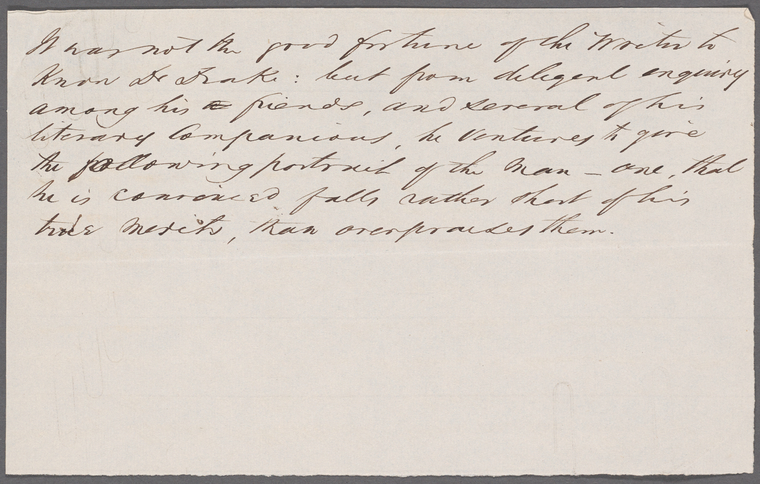 It was not the good fortune of the Writer to
Know Dr Drake: but from diligent enquiry
among his friends, and several of his
literary Companions, he ventures to give
the following portrait of the Man – one, that
he is convinced falls rather short of his
true merits, than overpraises them.